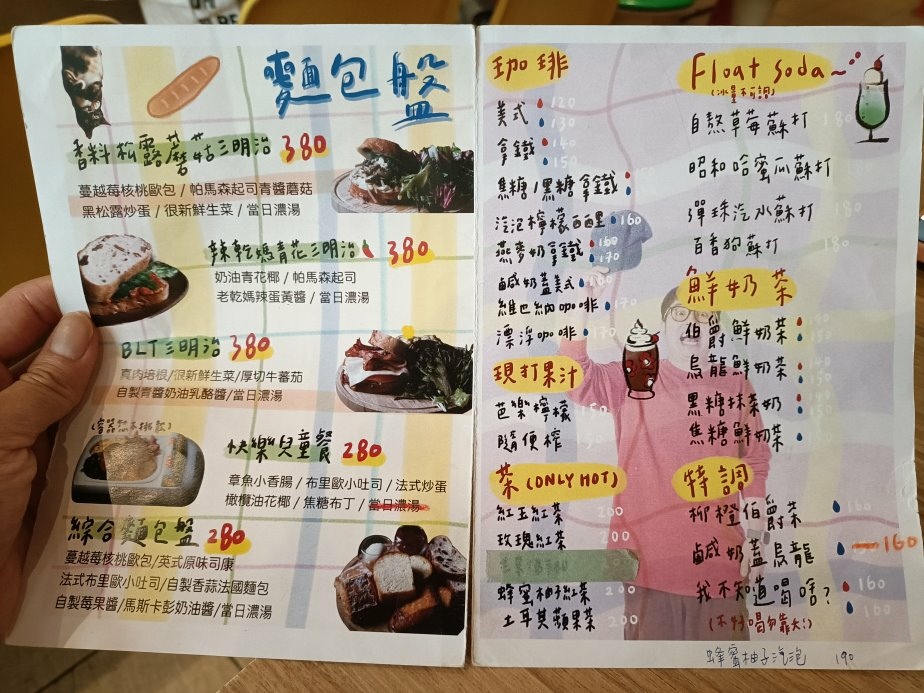 麵包盤
香料松露蘑菇三明治 380
蔓越莓核桃歐包 / 帕馬森起司青醬蘑菇
黑松露炒蛋 / 很新鮮生菜 / 當日濃湯
辣乾媽青花三明治 380
奶油青花椰 / 帕馬森起司
老乾媽辣蛋黃醬 / 當日濃湯
BLT三明治 380
真肉培根/很新鮮生菜/厚切牛蕃茄
自製青醬奶油乳酪醬/當日濃湯
快樂兒童餐 280
章魚小香腸 / 布里歐小吐司 / 法式炒蛋
橄欖油花椰 / 焦糖布丁 / 當日濃湯
綜合麵包盤 280
蔓越莓核桃歐包/英式原味司康
法式布里歐小吐司/自製香蒜法國麵包
自製莓果醬/馬斯卡彭奶油醬/當日濃湯
珈琲
美式 120
130
拿鐵 140
150
焦糖/黑糖拿鐵
汽泡檸檬西西里 160
燕麥奶拿鐵 160
170
鹹奶蓋美式 160
維也納咖啡 170
漂浮咖啡 170
現打果汁
芭樂檸檬 150
隨便榨
茶 (ONLY HOT)
紅玉紅茶 200
玫瑰紅茶 200
蜂蜜柚子紅茶 200
土耳其蘋果茶 200
Float Soda~
(冰量不可調)
自熬草莓蘇打 180
昭和哈蜜瓜蘇打
彈珠汽水蘇打
百香狗蘇打 180
鮮奶茶
伯爵鮮奶茶
烏龍鮮奶茶 140
150
黑糖抹茶奶
焦糖鮮奶茶
特調
柳橙伯爵茶
鹹奶蓋烏龍 160
我不知道喝啥? 160
(不好喝勿靠夭!) 160
蜂蜜柚子汽泡 190